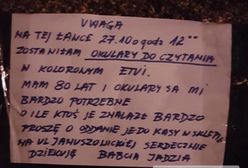 UWAGA
NA TEJ ŁAWCE 27.10 o godz 12⁰⁰
ZOSTAWIŁAM OKULARY DO CZYTANIA
W KOLOROWYM ETUI.
MAM 80 LAT I OKULARY SĄ MI
BARDZO POTRZEBNE
O ILE KTOŚ JE ZNALAZŁ BARDZO
PROSZĘ O ODDANIE JE DO KASY W SKLEPIE
NA UL JANUSZOWICKIEJ SERDECZNIE
DZIĘKUJĘ BABCIA JADZIA